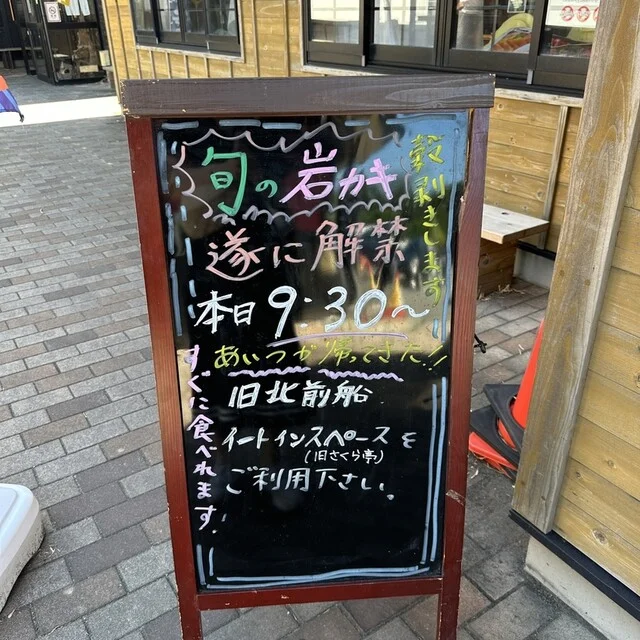 旬の岩カキ
遂に解禁
本日9:30～
あいつが帰ってきた!!
旧北前船
イートインスペースを
(旧さくら亭)
ご利用下さい。
殻剥きします
すぐに食べれます!